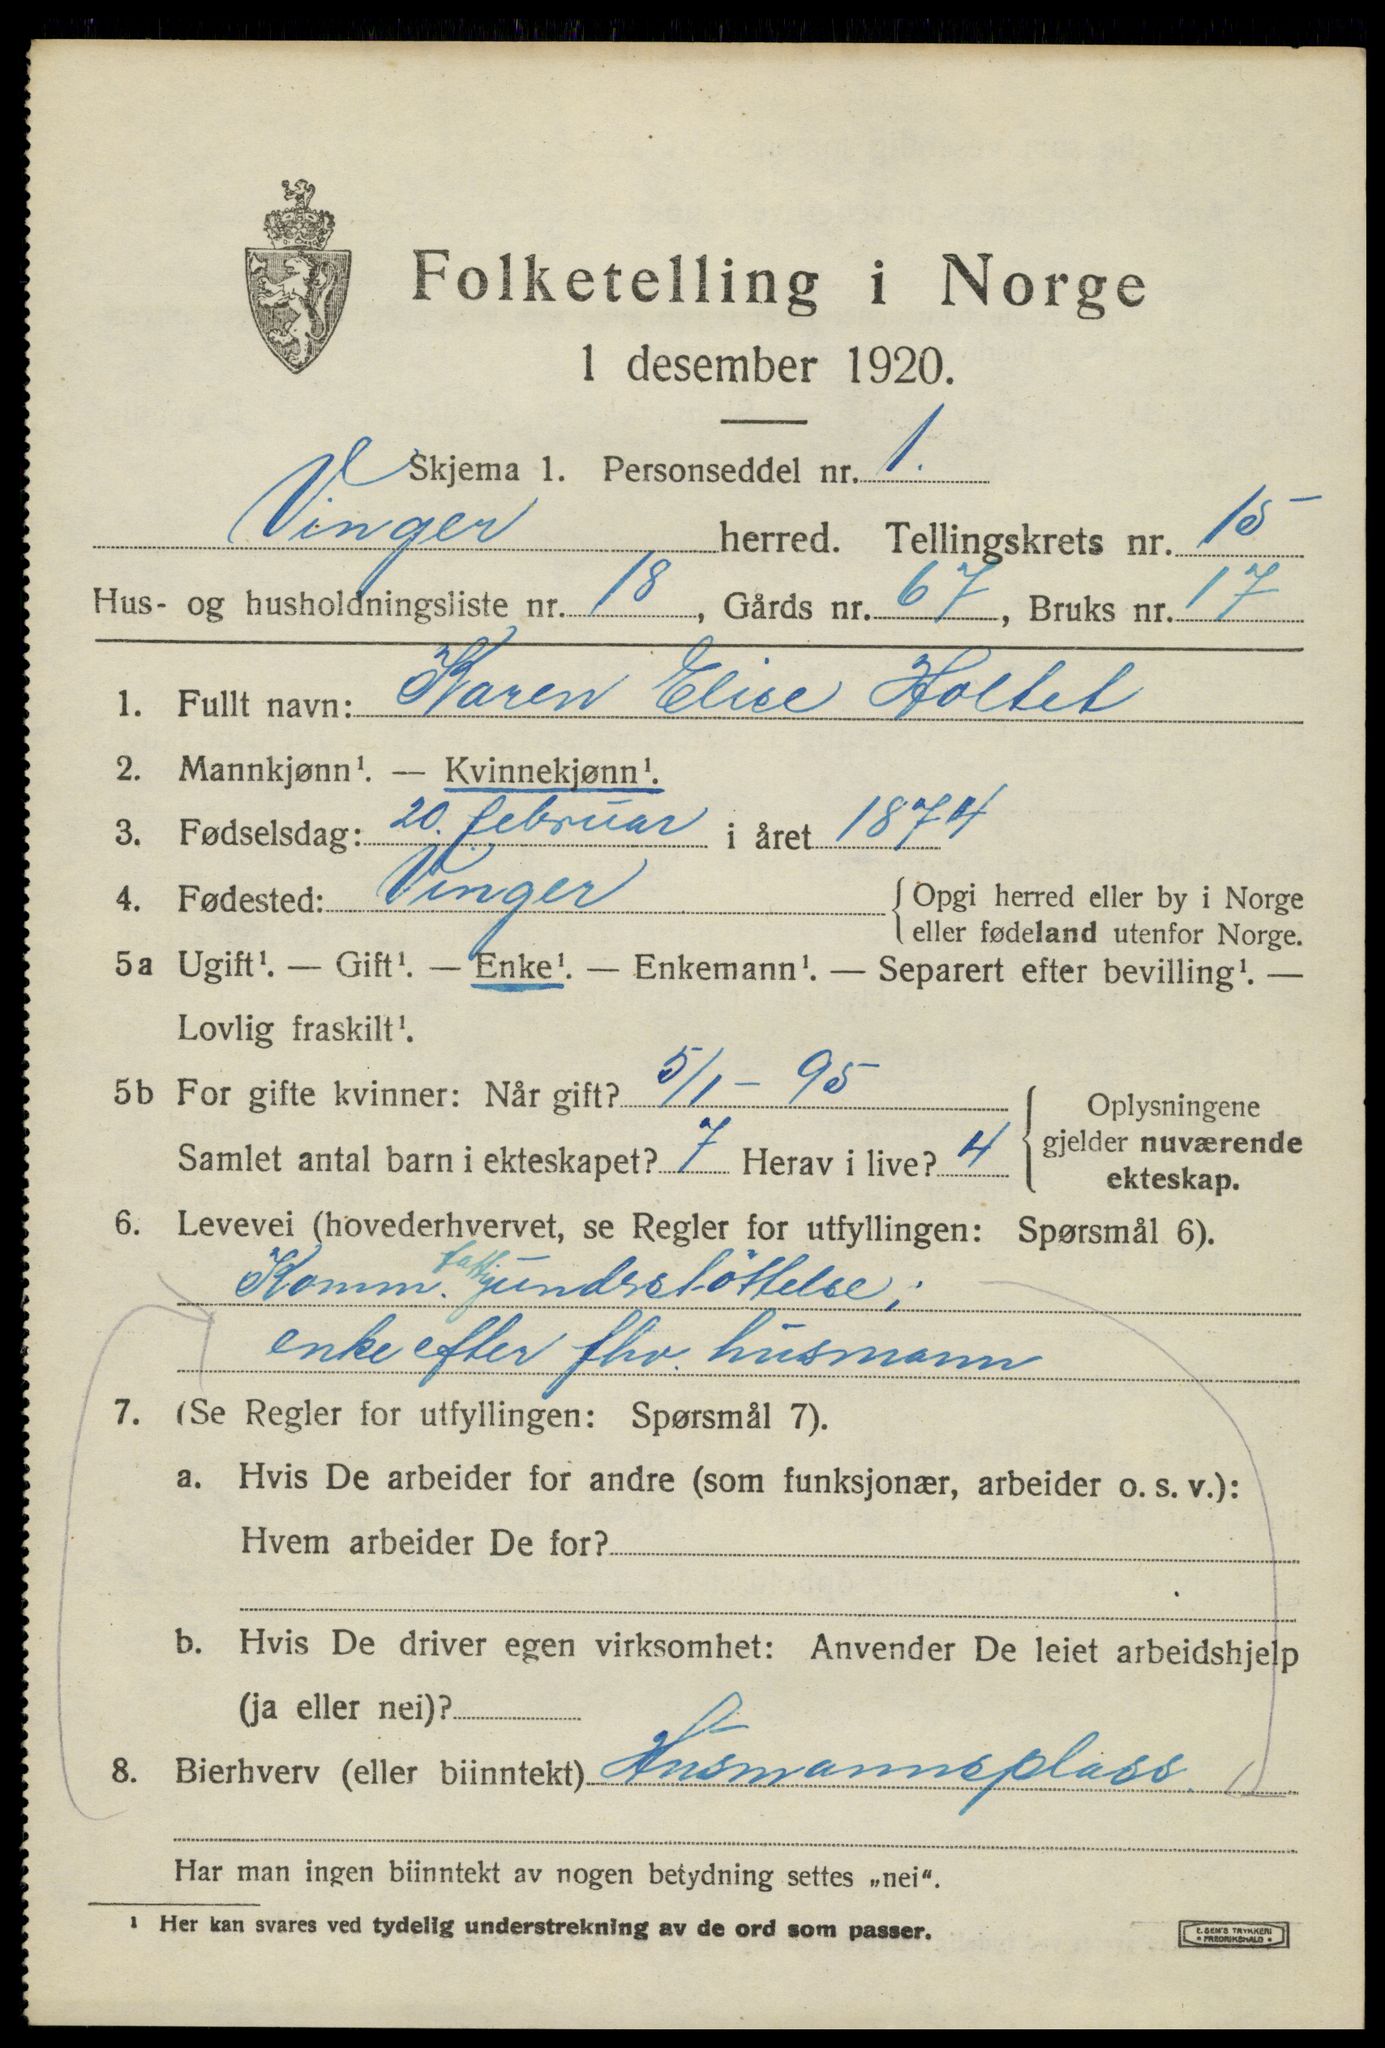 Folketelling i Norge
1 desember 1920.
Skjema 1. Personseddel nr. 1.
Vinger herred. Tellingskrets nr. 15
Hus- og husholdningsliste nr. 18, Gårds nr. 67, Bruks nr. 17
1. Fullt navn: Karen Elise Holtet
2. Mannkjønn¹. — Kvinnekjønn¹.
3. Fødselsdag: 20. februar i året 1874
4. Fødested: Vinger { Opgi herred eller by i Norge
eller fødeland utenfor Norge.
5a Ugift¹. — Gift¹. — Enke¹. — Enkemann¹. — Separert efter bevilling¹. —
Lovlig fraskilt¹.
5b For gifte kvinner: Når gift? 5/1 – 95
Samlet antal barn i ekteskapet? 7 Herav i live? 4
Oplysningene
gjelder nuværende
ekteskap.
6. Levevei (hovederhvervet, se Regler for utfyllingen: Spørsmål 6).
Komm. fattigundrstöttelse;
enke efter fhv. husmann
7. (Se Regler for utfyllingen: Spørsmål 7).
a. Hvis De arbeider for andre (som funksjonær, arbeider o. s. v.):
Hvem arbeider De for?
b. Hvis De driver egen virksomhet: Anvender De leiet arbeidshjelp
(ja eller nei)?
8. Bierhverv (eller biinntekt) Husmannsplass.
Har man ingen biinntekt av nogen betydning settes „nei“.
¹ Her kan svares ved tydelig understrekning av de ord som passer.
E. SEM'S TRYKKERI
• FREDRIKSHALD •